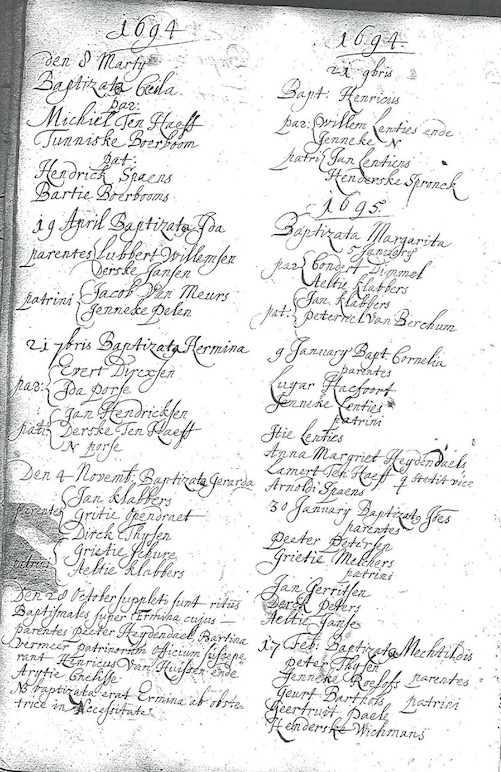 1694
den 8 Marty
Baptizata Ceila
par:
Michiel Ten Haeff
Tunniske Boerboom
pat:
Hendrick Spaens
Bartie Boerbooms
19 April Baptizata Ida
parentes Lubbert Willemsen
Derske Jansen
patrini Jacob Van Meurs
Jenneke Pelen
21 7bris Baptizata Hermina
par: Evert Dircxsen
Ida porse
pat: Jan Hendricksen
Derske Ten Haeff
N porse
Den 4 Novemb: Baptizata Gerarda
parentes Jan Klabbers
Gritie Opendraet
patrini Dirck Thysen
Grietie Schure
Aeltie Klabbers
Den 28 October suppleti sunt ritus
Baptismales super Ermina cujus
parentes peeter Heydendael Bartina
Vermeer patrinorum officium suscepe
rant Henricus Van Huissen ende
Arytie
N3 baptizata erat Ermina ab obste
trice in Necessitate
1694.
21 9bris
Bapt: Henricus
par: Willem Lenties ende
Jenneke N
patri: Jan Lentiens
Henderske Spronck
1695.
Baptizata Margarita
5 January
par: Condert Dimmel
Aeltie Klabbers
pat: Jan Klabbers
Peternel Van Berchum
9 January Bapt Cornelia
parentes
Lugar Hacfoort
Jenneke Lenties
patrini
Itie Lenties
Anna Margriet Heydendaels
Lamert Ten Haeff q stetit vice
Arnoldi Spaens
30 January Baptizata Joes
parentes
Peeter Petersen
Grietie Melchers
patrini
Jan Gerritsen
Derck Peters
Aeltie Janse
17 Feb: Baptizata Mechtildis
Peter Thysen
Jenneke Roelofs parentes
Geurt Barthols patrini
Geertruit Daele
Henderske Wichmans